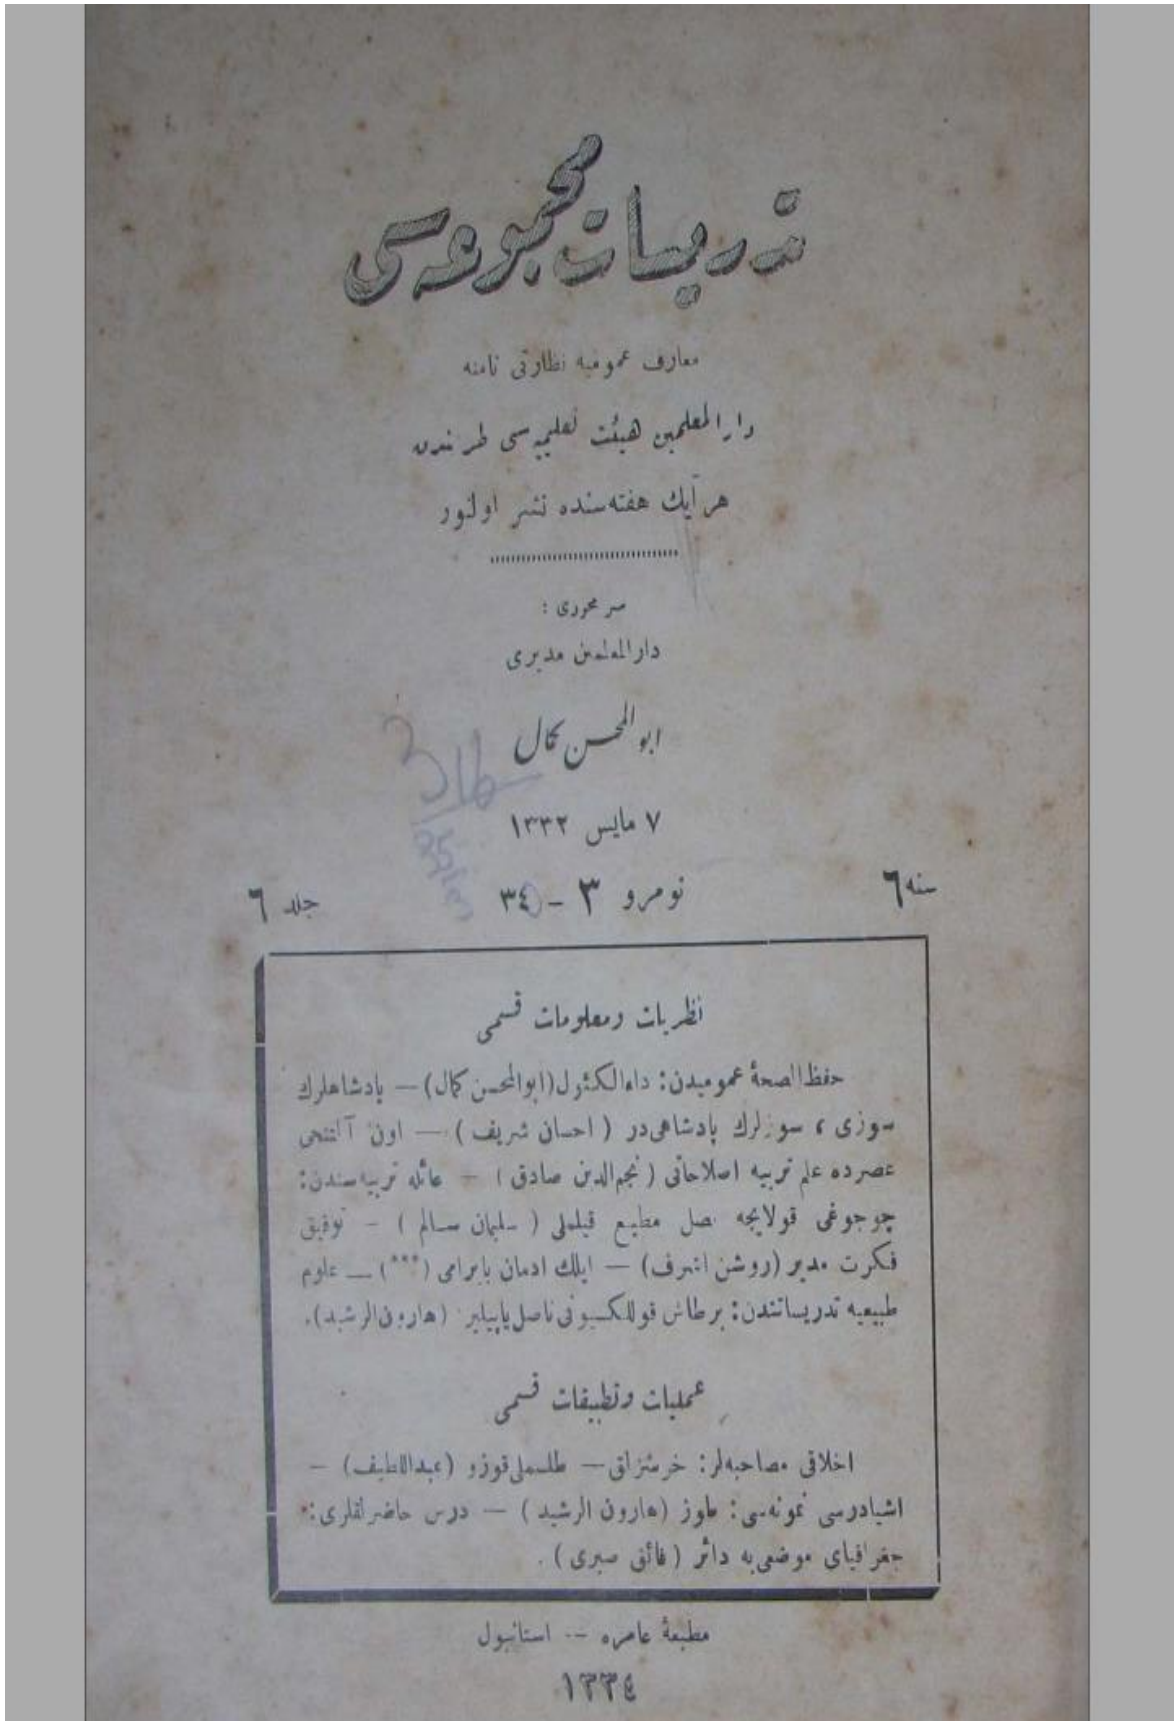 تدریسات مجموعه‌سی
معارف عمومیه نظارتی نامنه
دار المعلمین هیئت تعلیمیه‌سی طرفندن
هر آیك هفته‌سنده نشر اولنور
سر محرری :
دار المعلمین مدیری
ابو المحسن كمال
٧ مایس ١٣٣٢
سنه ٦ نومرو ٣ - ٣٤ جلد ٦
نظریات و معلومات قسمی
حفظ الصحهٔ عمومیدن: داء الكئول (ابوالمحسن كمال) — پادشاهلرك
سوزی ، سوزلرك پادشاهی‌در (احسان شریف) — اون آلتنجی
عصرده علم تربیه اصلاحاتی (نجم‌الدین صادق) — عائله تربیه‌سندن:
چوجوغی قولایجه نصل مطیع قیلملی (سلیمان سالم) — توفیق
فكرت مدیر (روشن اشرف) — ایلك ادمان بایرامی (***) — علوم
طبیعیه تدریساتندن: بر طاش قوللكسیونی ناصل یاپیلیر (هارون الرشید).
عملیات و تطبیقات قسمی
اخلاقی مصاحبه‌لر: خرسزلق — طلسملی قوزو (عبداللطیف) —
اشیا درسی نمونه‌سی: طوز (هارون الرشید) — درس حاضرلقلری:
جغرافیای موضعی‌یه دائر (فائق صبری) .
مطبعهٔ عامره -- استانبول
١٣٣٤
3
316